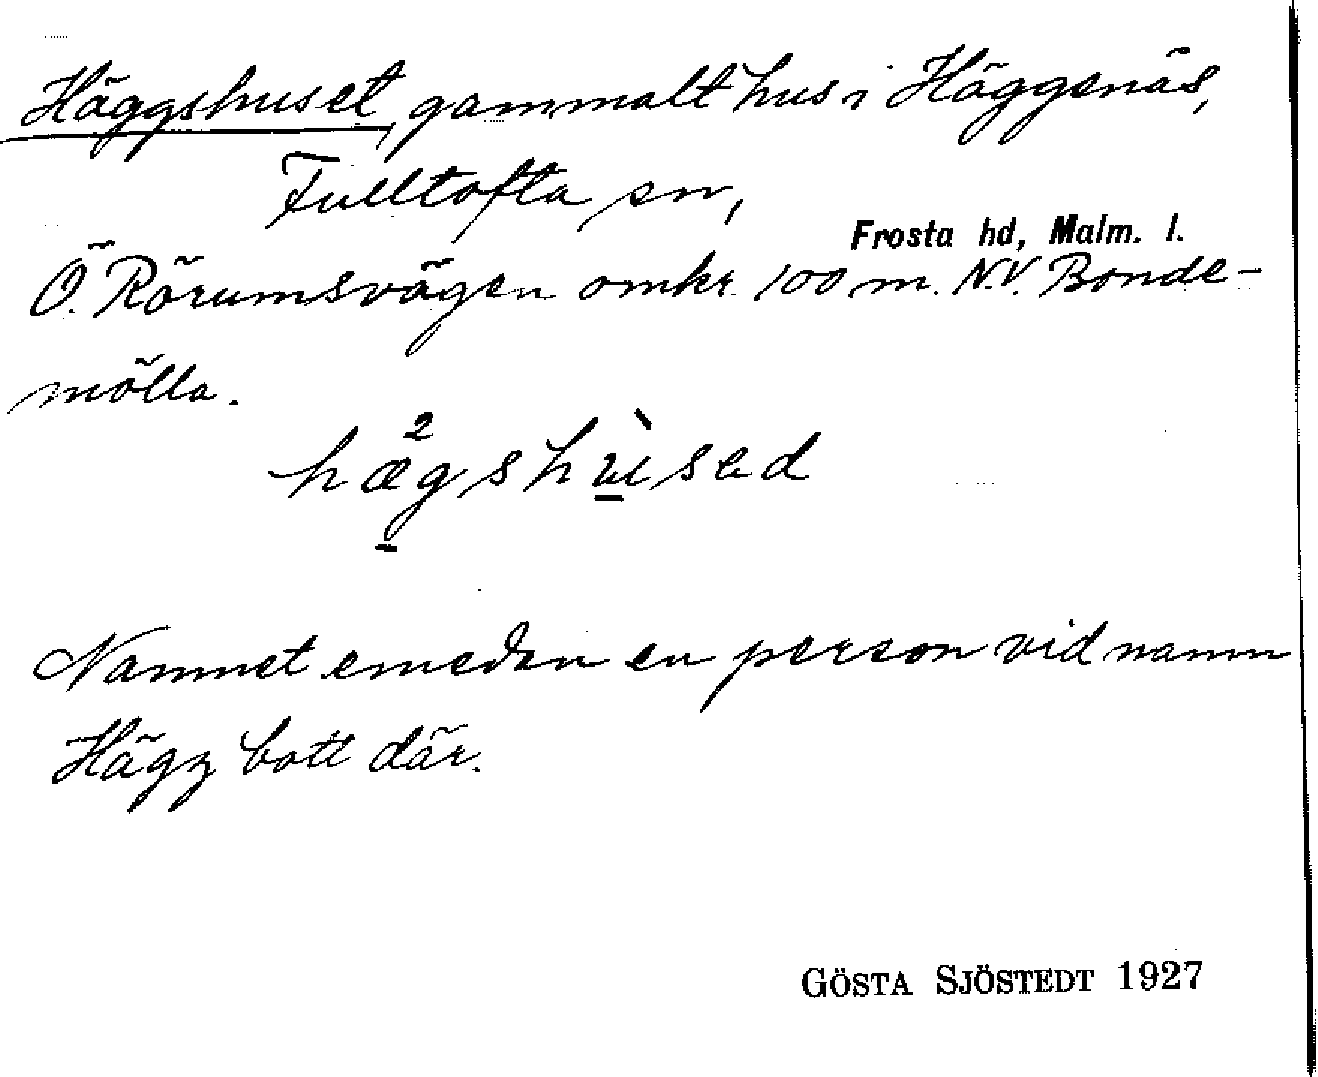 Häggshuset, gammalt hus i Häggenäs,
Fulltofta sn,
Frosta hd, Malm. l.
Ö. Rörumsvägen omkr. 100 m. N.V. Bonde-
mölla.
hæ²gshùsad
Namnet emedan en person vid namn
Hägg bott där.
GÖSTA SJÖSTEDT 1927